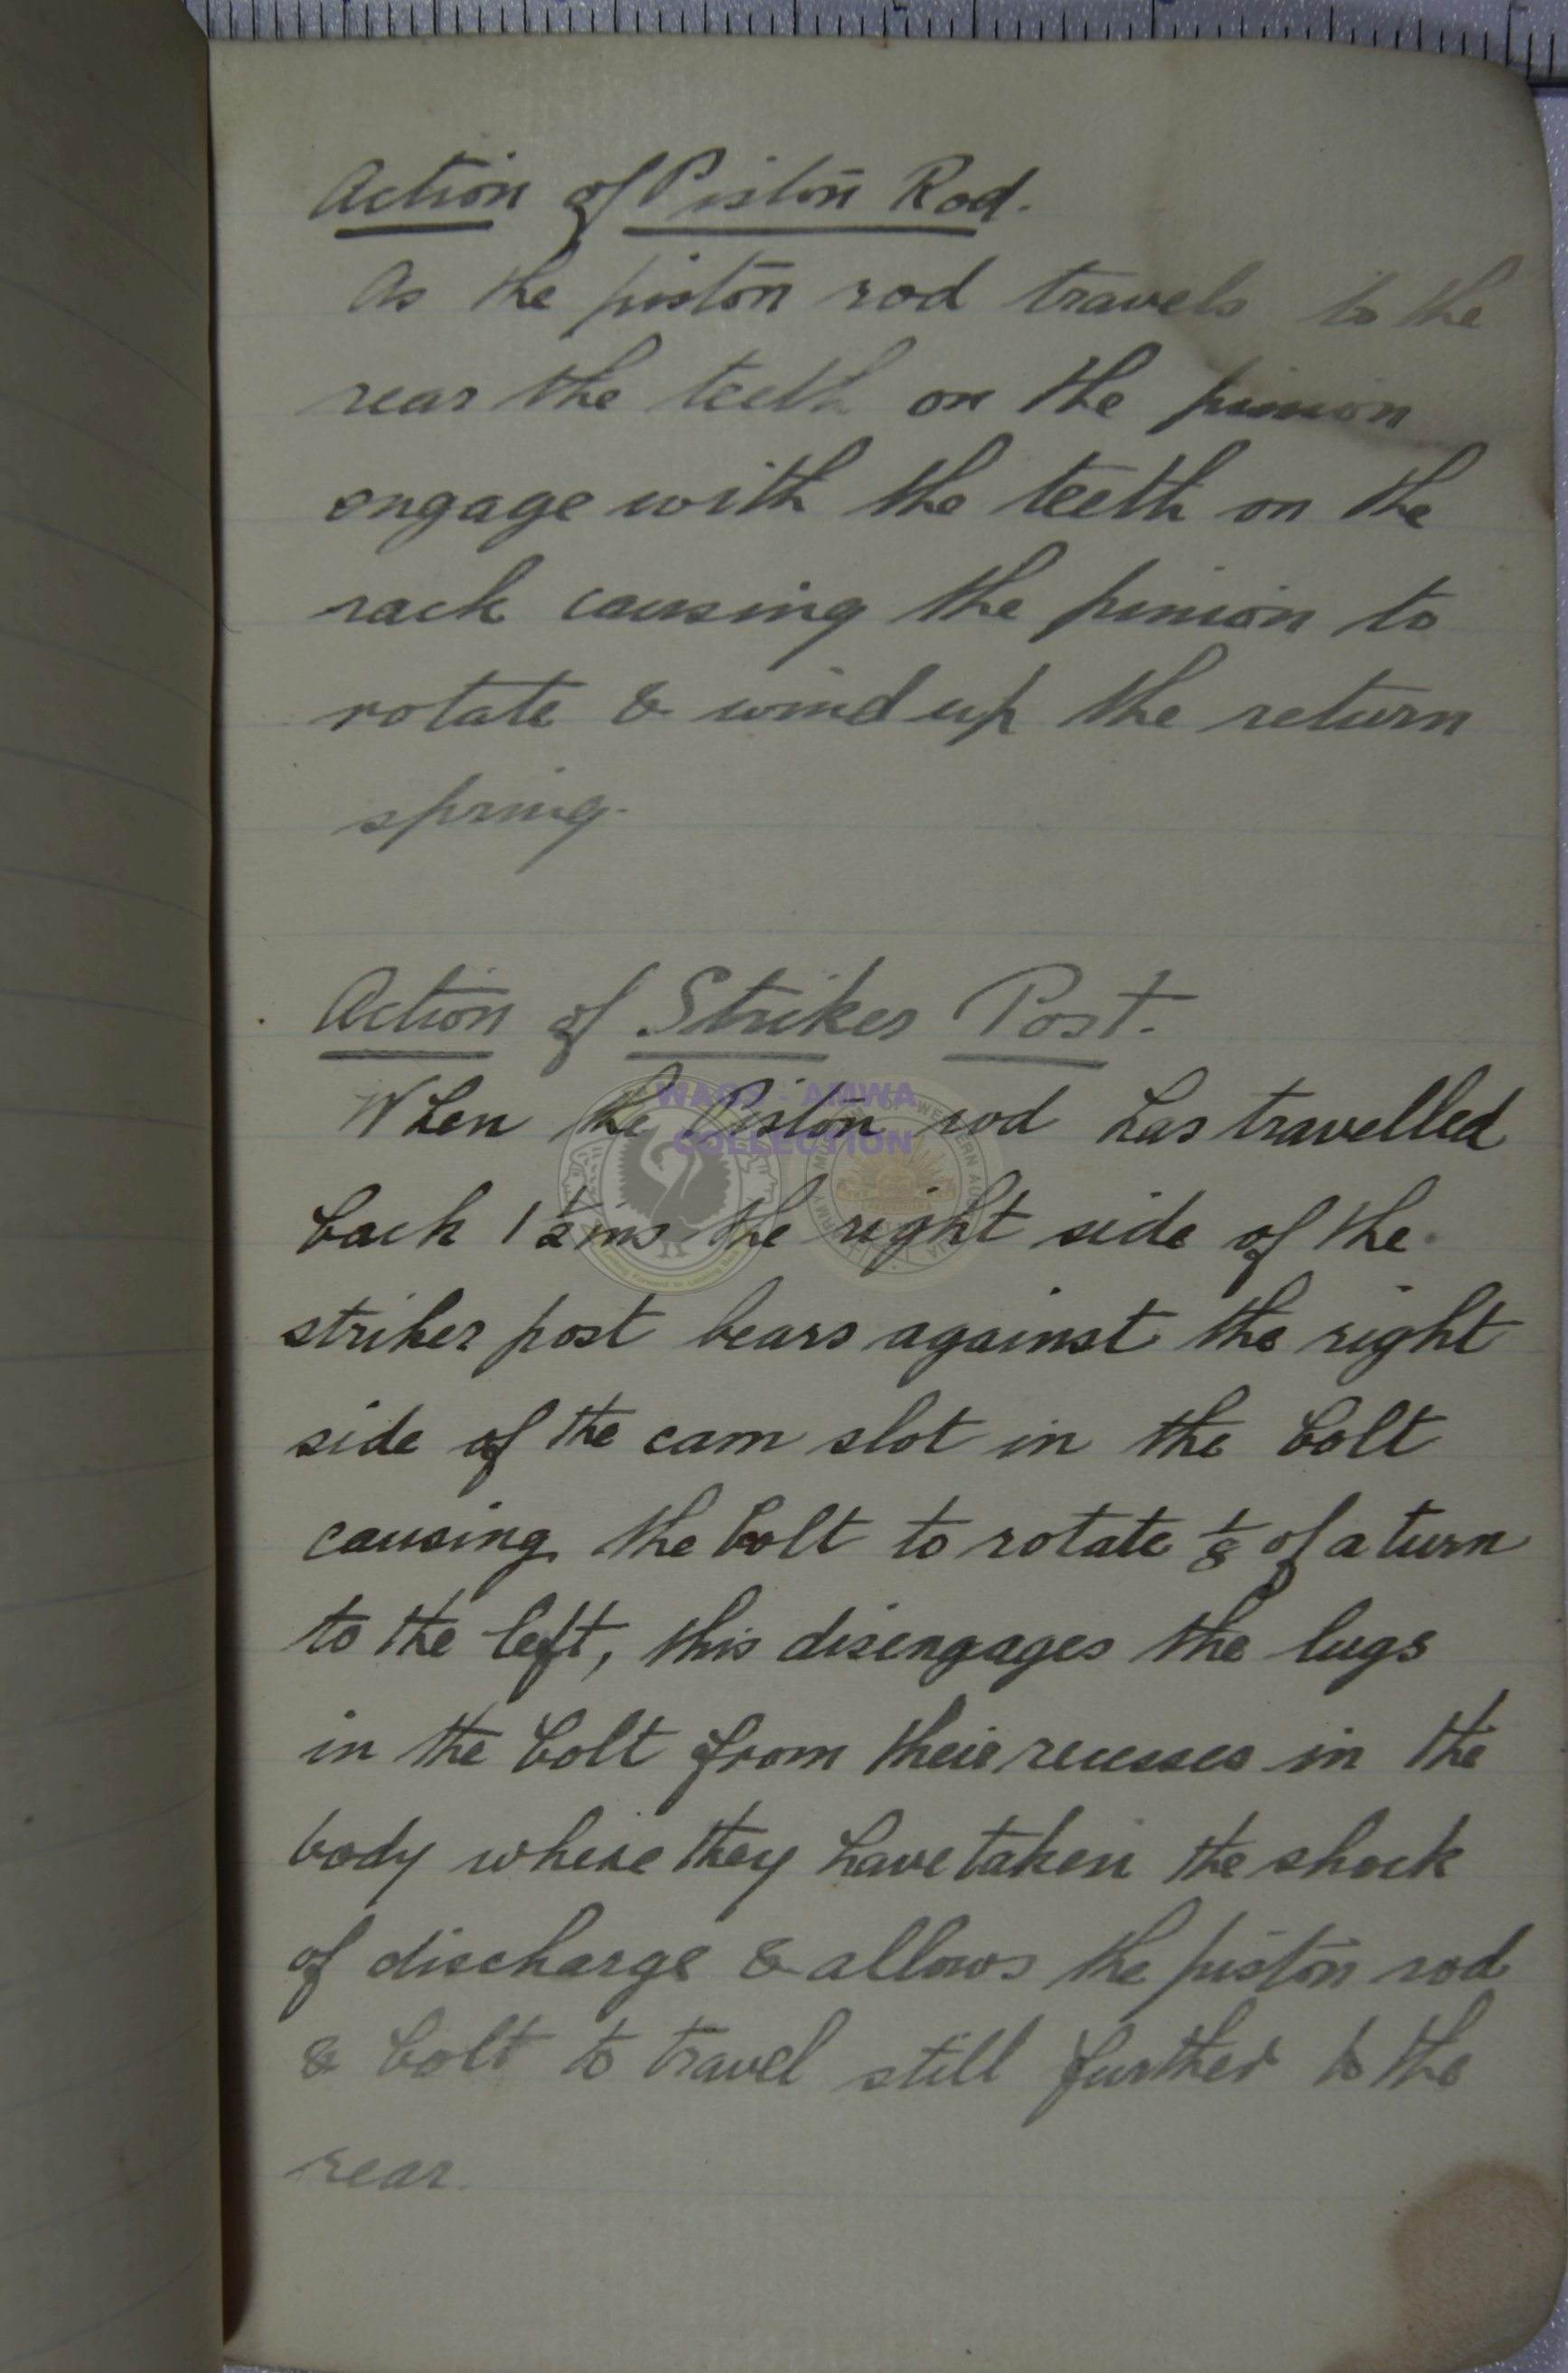 Action of Piston Rod.
As the piston rod travels to the
rear the teeth on the pinion
engage with the teeth on the
rack causing the pinion to
rotate & wind up the return
spring.
Action of Striker Post.
When the Piston rod has travelled
back 1 1/2 ins the right side of the
striker post bears against the right
side of the cam slot in the bolt
causing the bolt to rotate 1/8 of a turn
to the left, this disengages the lugs
in the bolt from their recesses in the
body where they have taken the shock
of discharge & allows the piston rod
& bolt to travel still further to the
rear.
WAGS - AMWA
COLLECTION